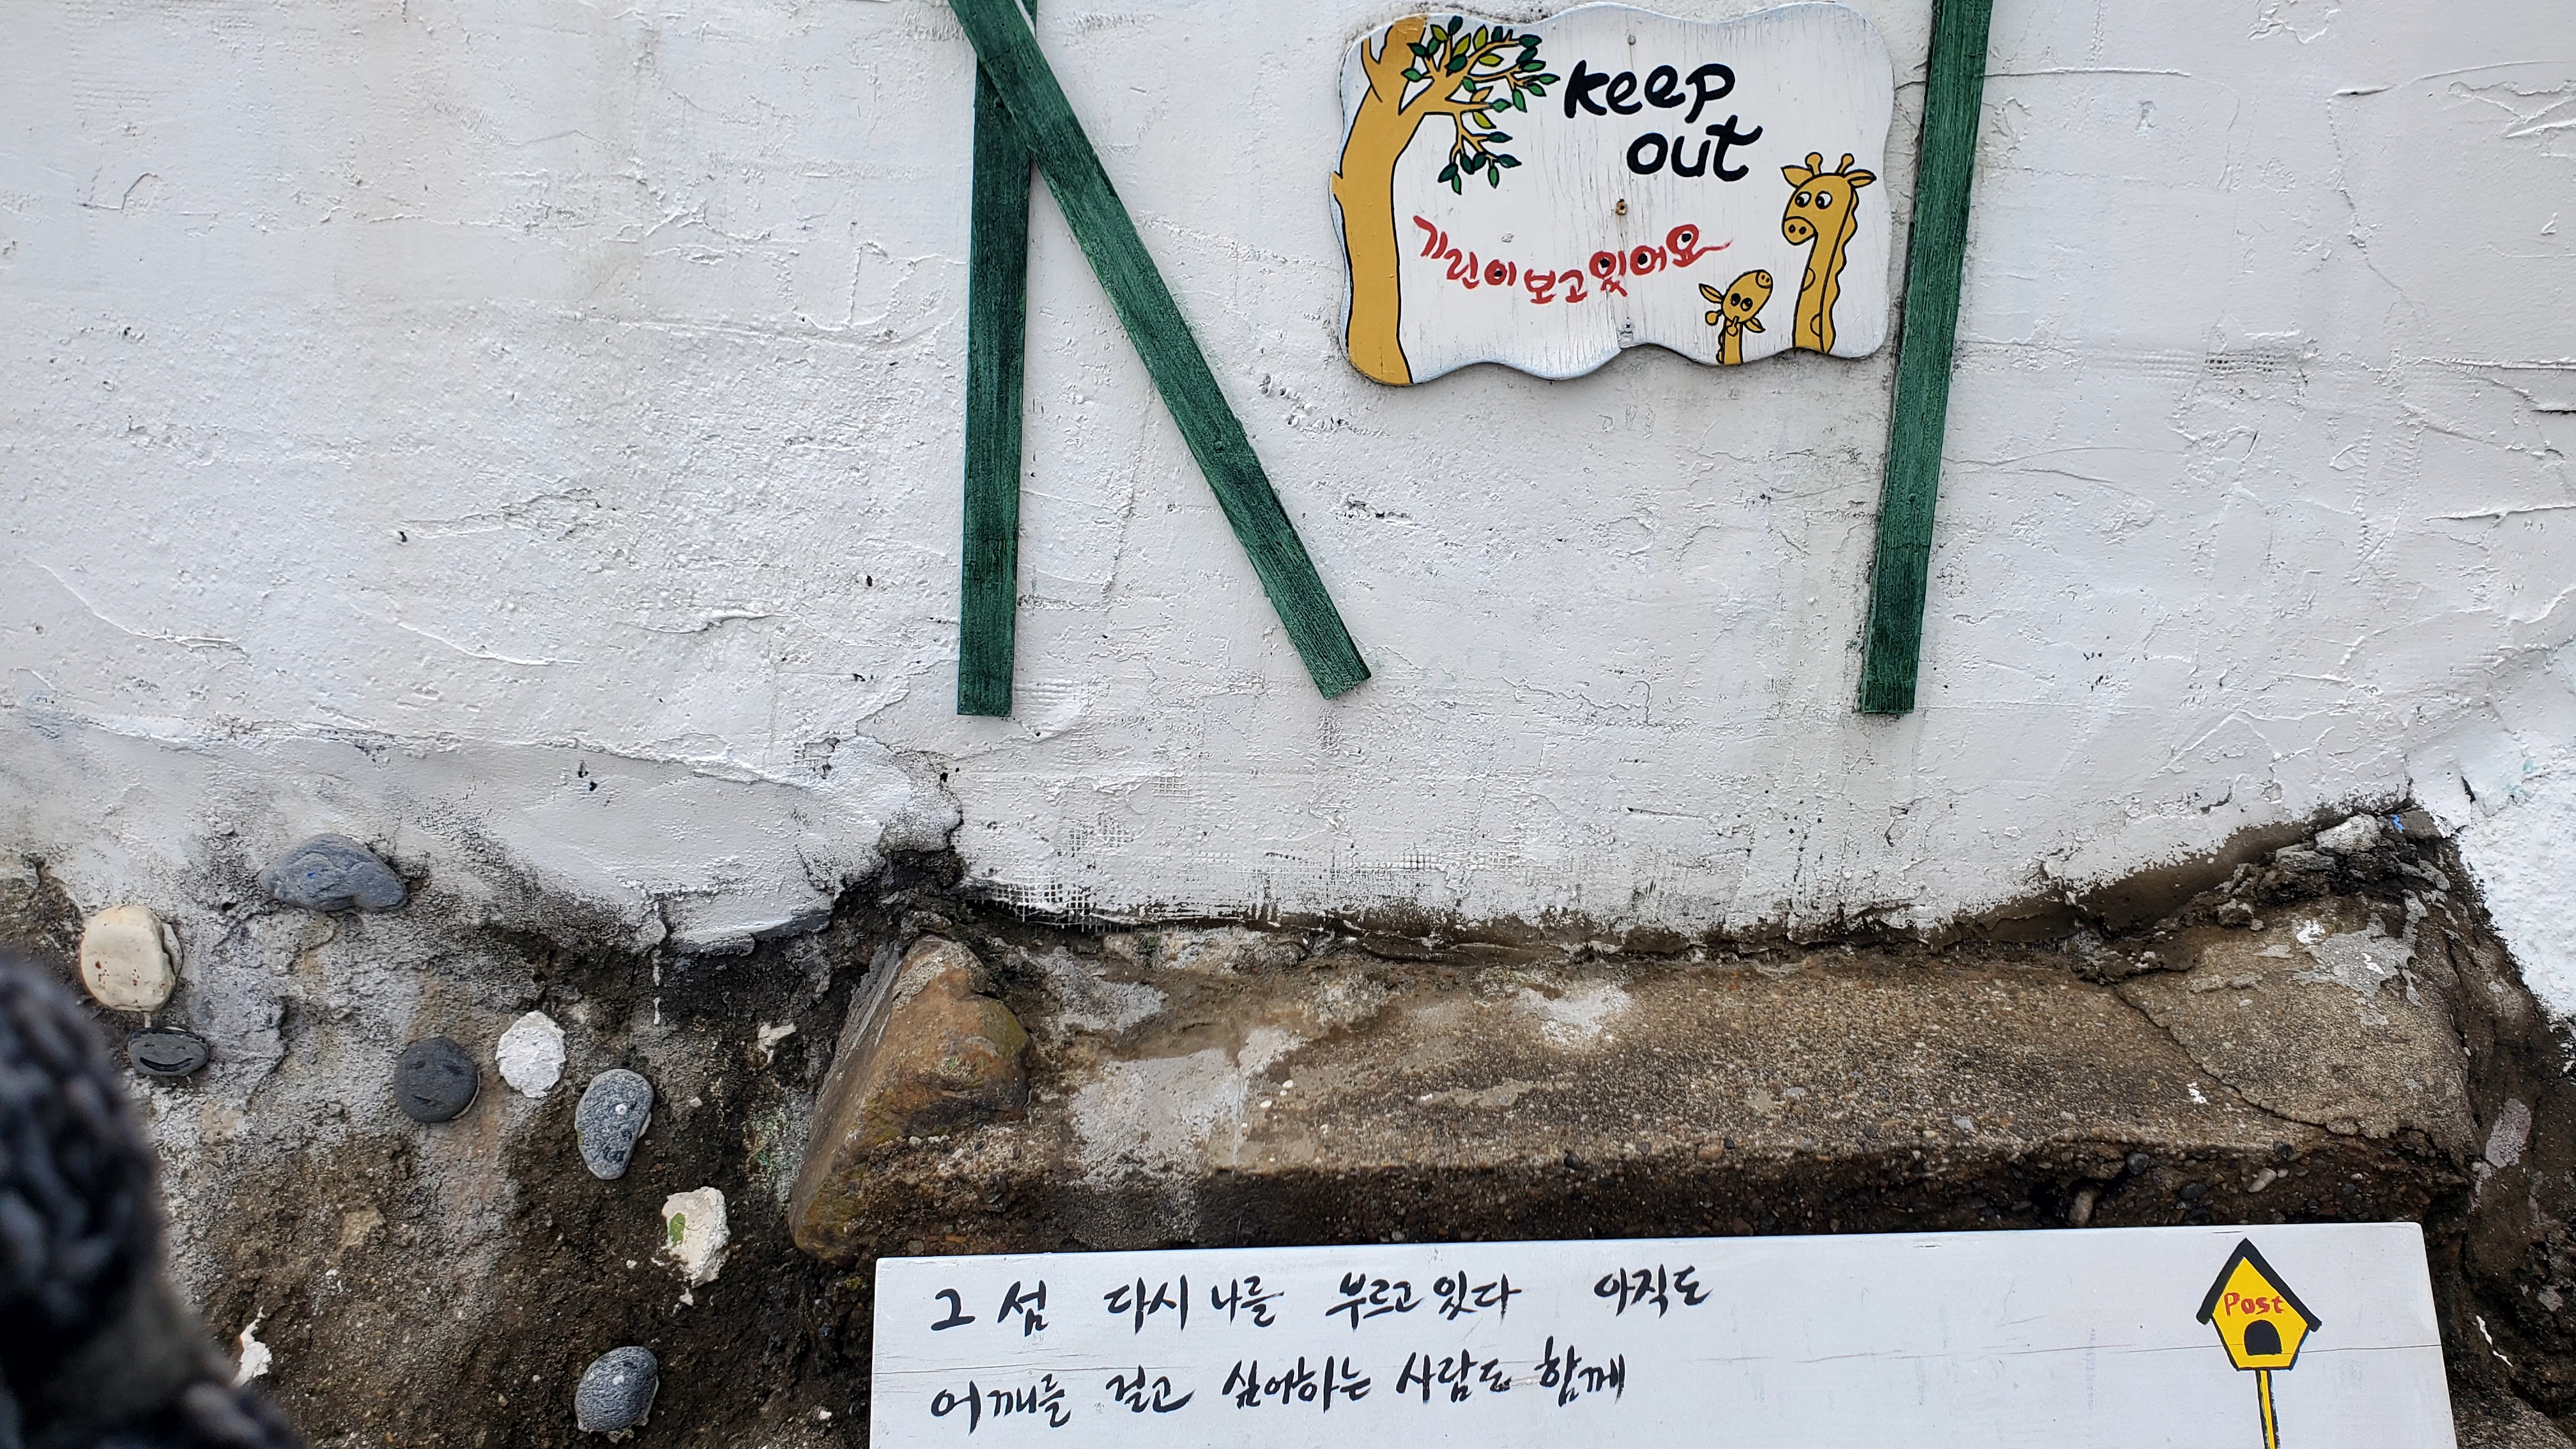 keep
out
기린이 보고있어요
그 섬 다시 나를 부르고 있다 아직도
어깨를 걸고 싶어하는 사람도 함께
Post